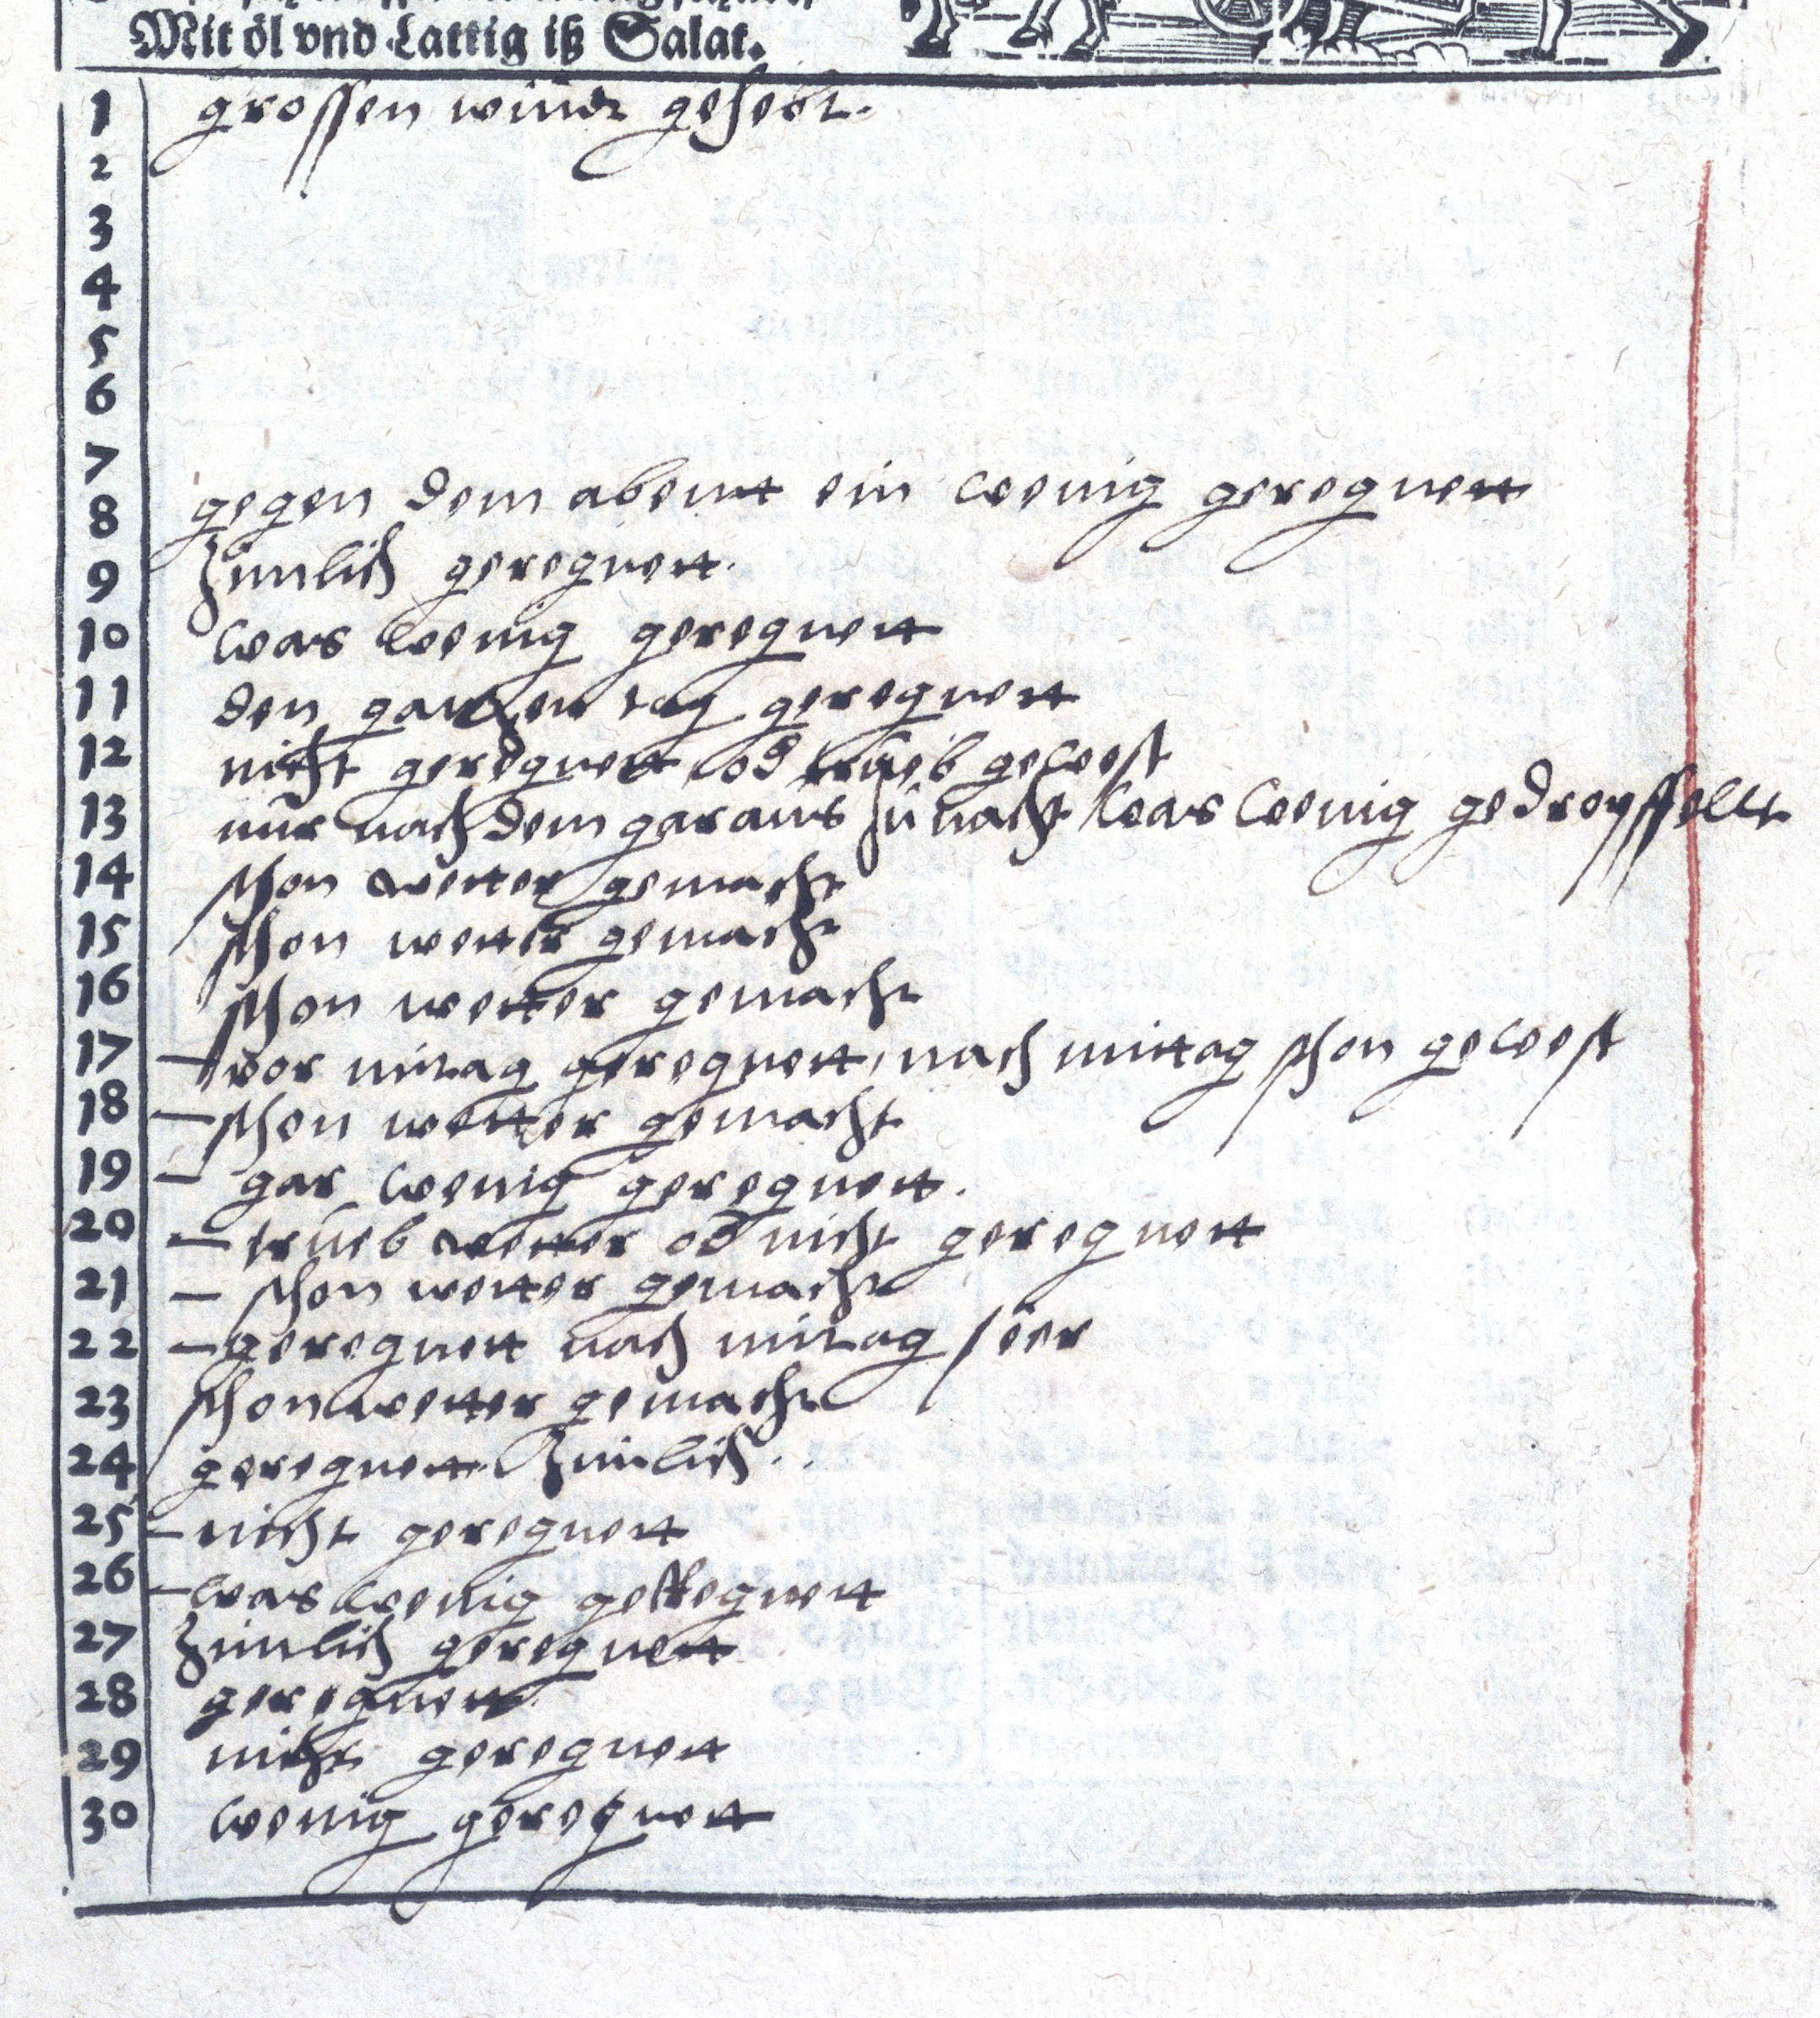 Mit öl vnd Lattig iß Salat.
1 grossen windt gehebt.
2
3
4
5
6
7
8 gegen dem abentt ein wenig geregnett
9 Zimlich geregnett.
10 was wenig geregnett
11 den ganzen tag geregnett
12 nicht geregnett od trüeb gewest
13 nur nach dem garaus zu nacht was wenig gedropffellt
14 schon wetter gemacht
15 schon wetter gemacht
16 schon wetter gemacht
17 – vor mitag geregnett, nach mittag schon gewest
18 – schon wetter gemacht
19 – gar wenig geregnett.
20 – trüeb wetter od nicht geregnett
21 – schon wetter gemacht
22 – geregnett nach mitag seer
23 schon wetter gemacht
24 geregnett Zimlich..
25 – nicht geregnett
26 – was wenig geregnett
27 Zimlich geregnett
28 geregnett
29 nicht geregnett
30 wenig geregnett